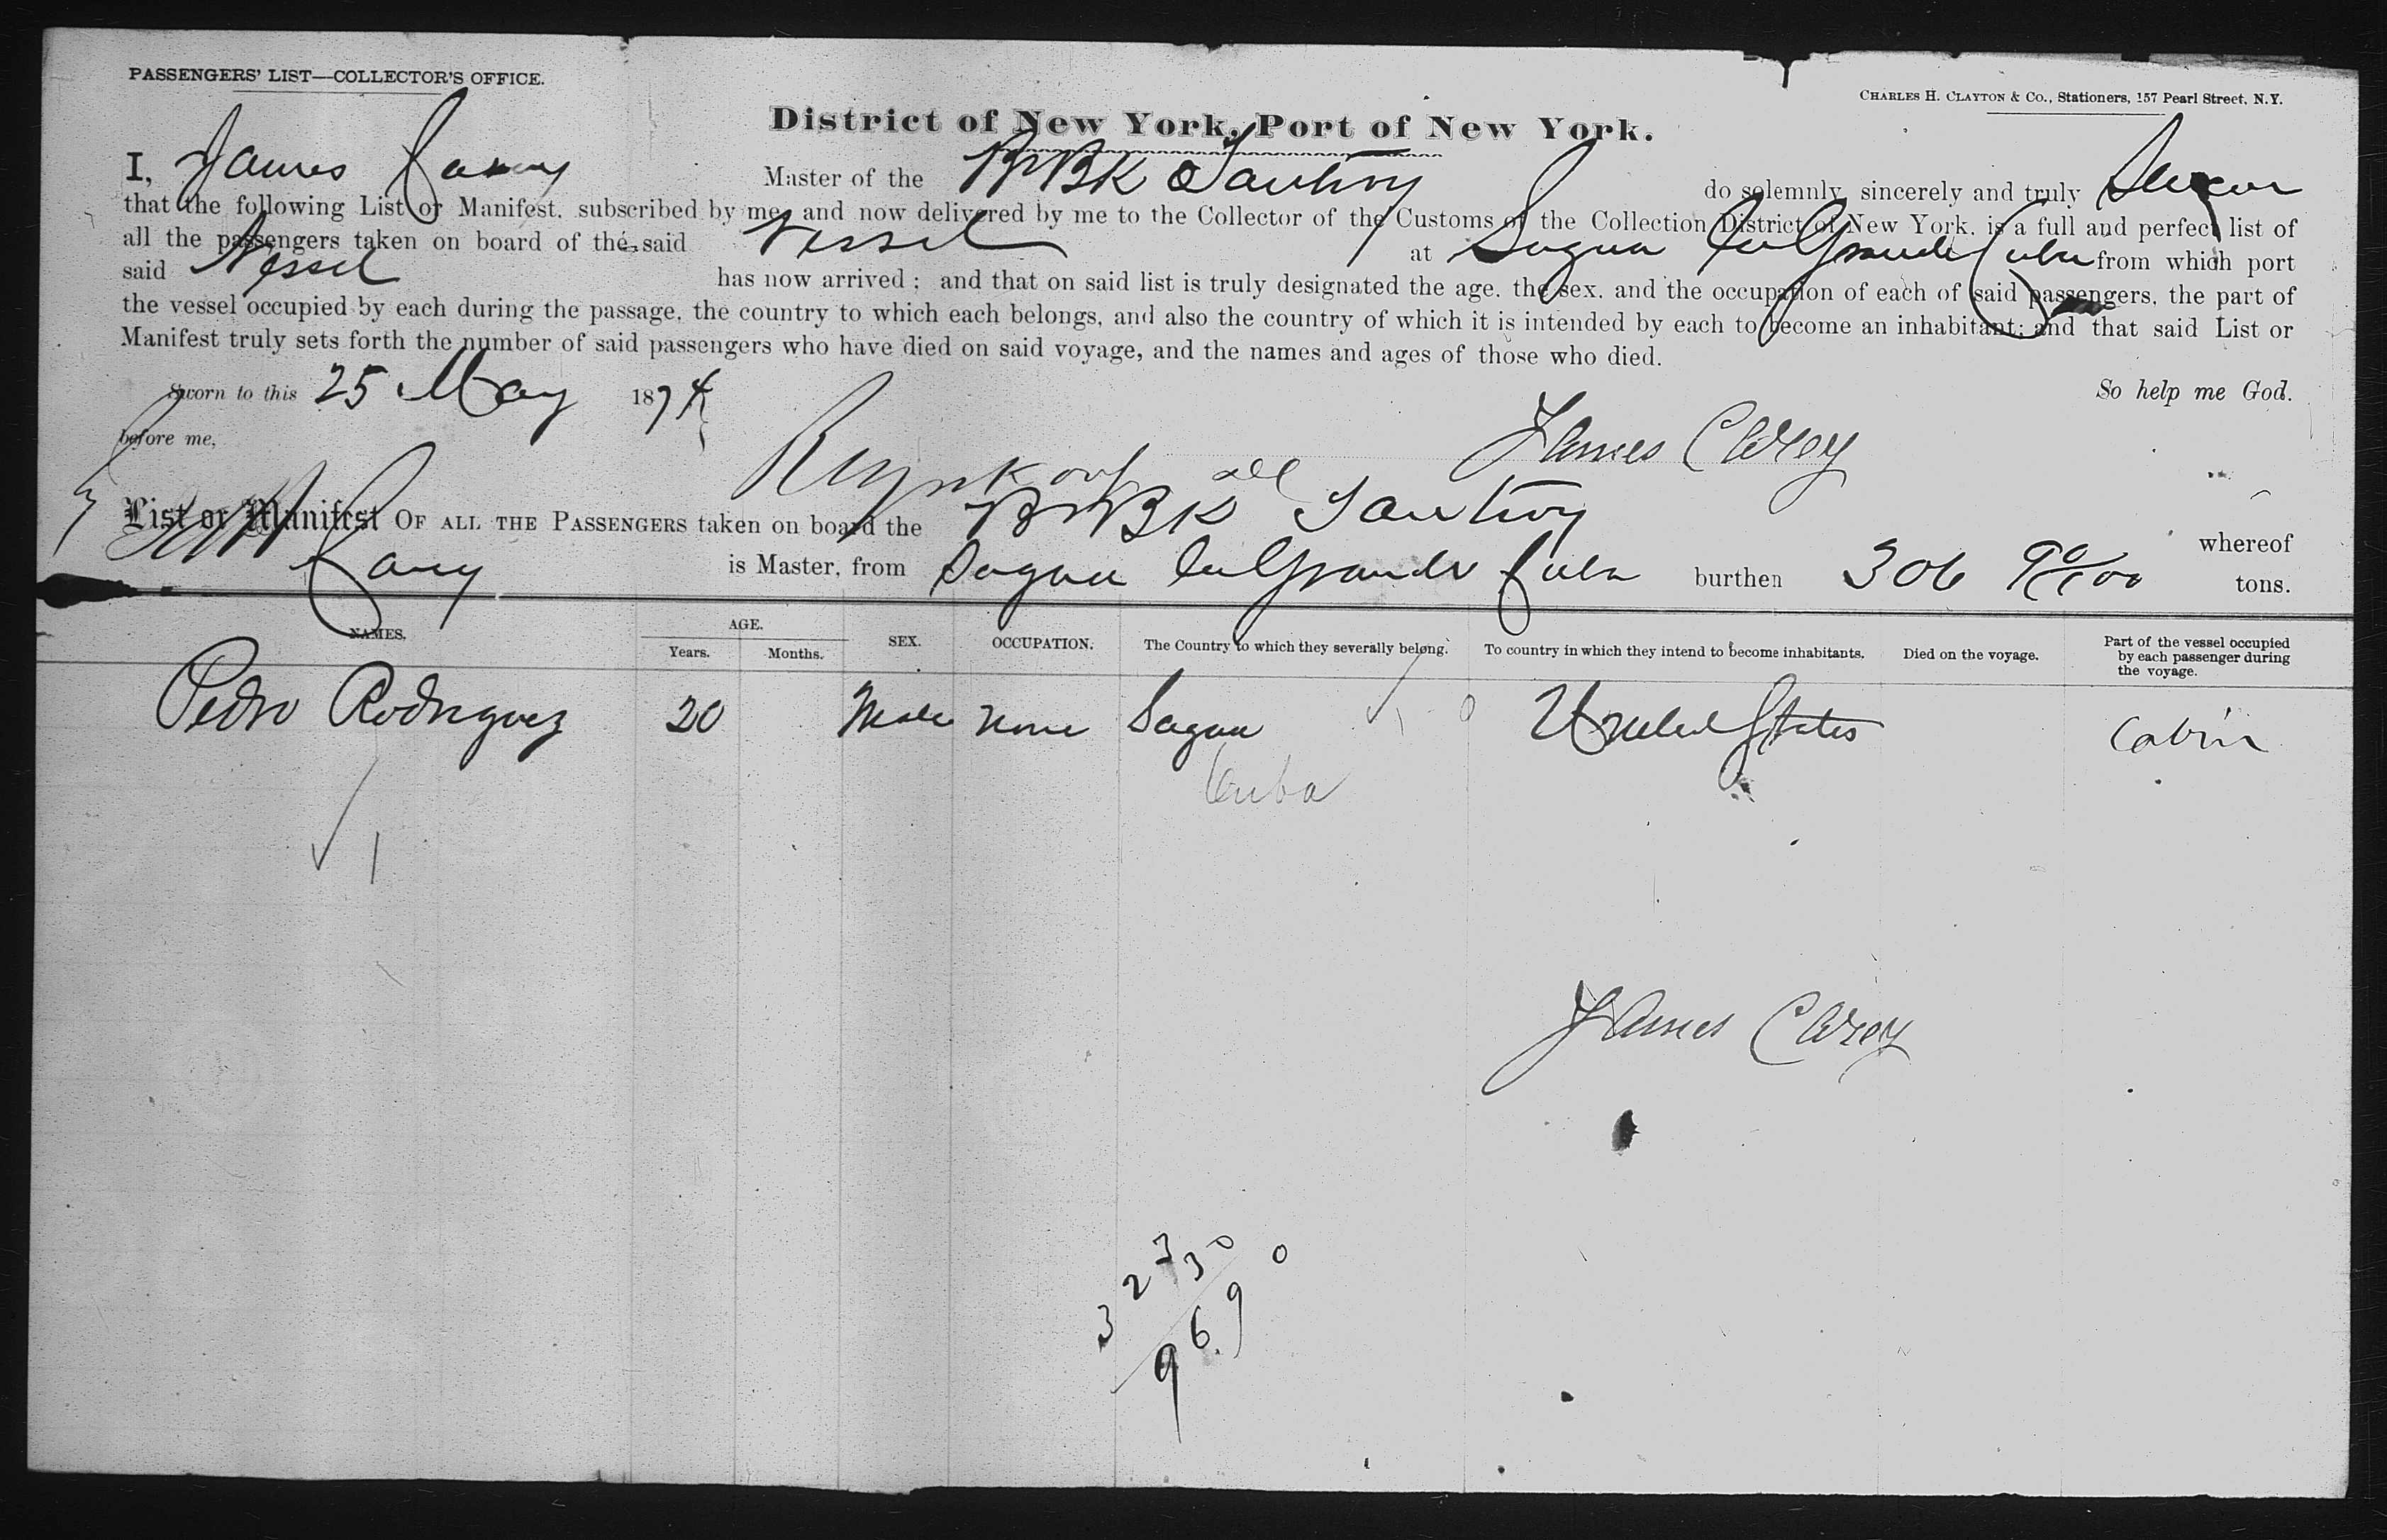 PASSENGERS' LIST—COLLECTOR'S OFFICE.
CHARLES H. CLAYTON & CO., Stationers, 157 Pearl Street, N.Y.
District of New York, Port of New York.
I, James Carey Master of the Br Bk do solemnly, sincerely and truly Swear
that the following List or Manifest, subscribed by me, and now delivered by me to the Collector of the Customs of the Collection District of New York, is a full and perfect list of
all the passengers taken on board of the said Vessel at Sagua La Grande Cuba from which port
said Vessel has now arrived; and that on said list is truly designated the age, the sex, and the occupation of each of said passengers, the part of
the vessel occupied by each during the passage, the country to which each belongs, and also the country of which it is intended by each to become an inhabitant; and that said List or
Manifest truly sets forth the number of said passengers who have died on said voyage, and the names and ages of those who died.
Sworn to this 25 May 1874 So help me God.
before me, James Carey
List or Manifest OF ALL THE PASSENGERS taken on board the Br Bk whereof
Carey is Master, from Sagua La Grande Cuba burthen 306 90/100 tons.
NAMES. AGE. Years. Months. SEX. OCCUPATION. The Country to which they severally belong. To country in which they intend to become inhabitants. Died on the voyage. Part of the vessel occupied by each passenger during the voyage.
Pedro Rodriguez 20 Male None Sagua United States Cabin
Cuba
1
James Carey
3 2 7 3 0 0
9 6 9